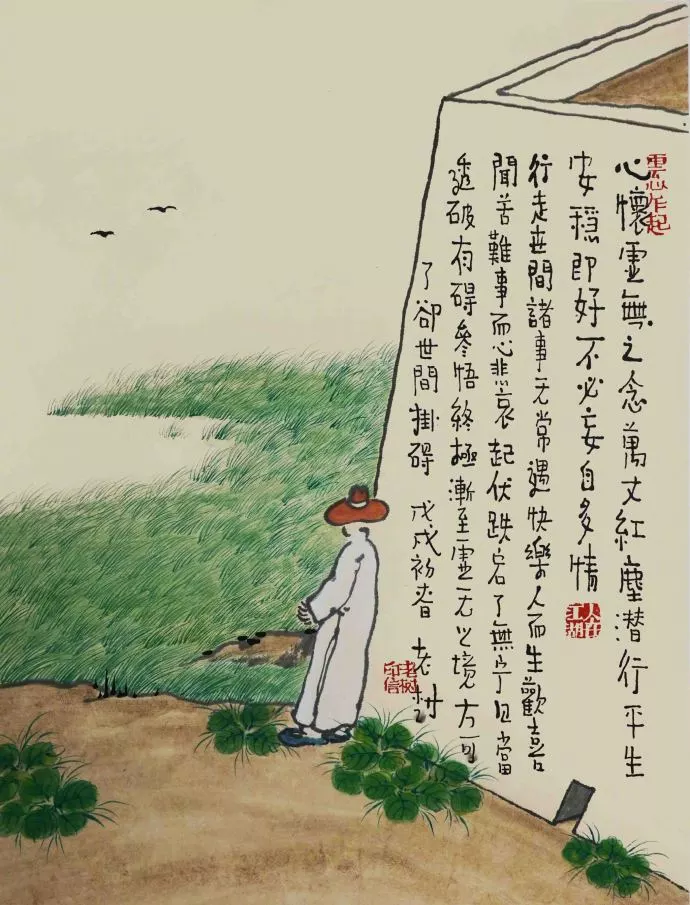 心懷虛無之念萬丈紅塵潜行平生
安穩即好不必妄自多情
行走世間諸事无常遇快樂人而生歡喜
聞苦難事而心悲哀起伏跌宕了無宁日當
透破有碍參悟終極漸至虛无之境方可
了卻世間掛碍 戊戌初春 老树
人在江湖
老树